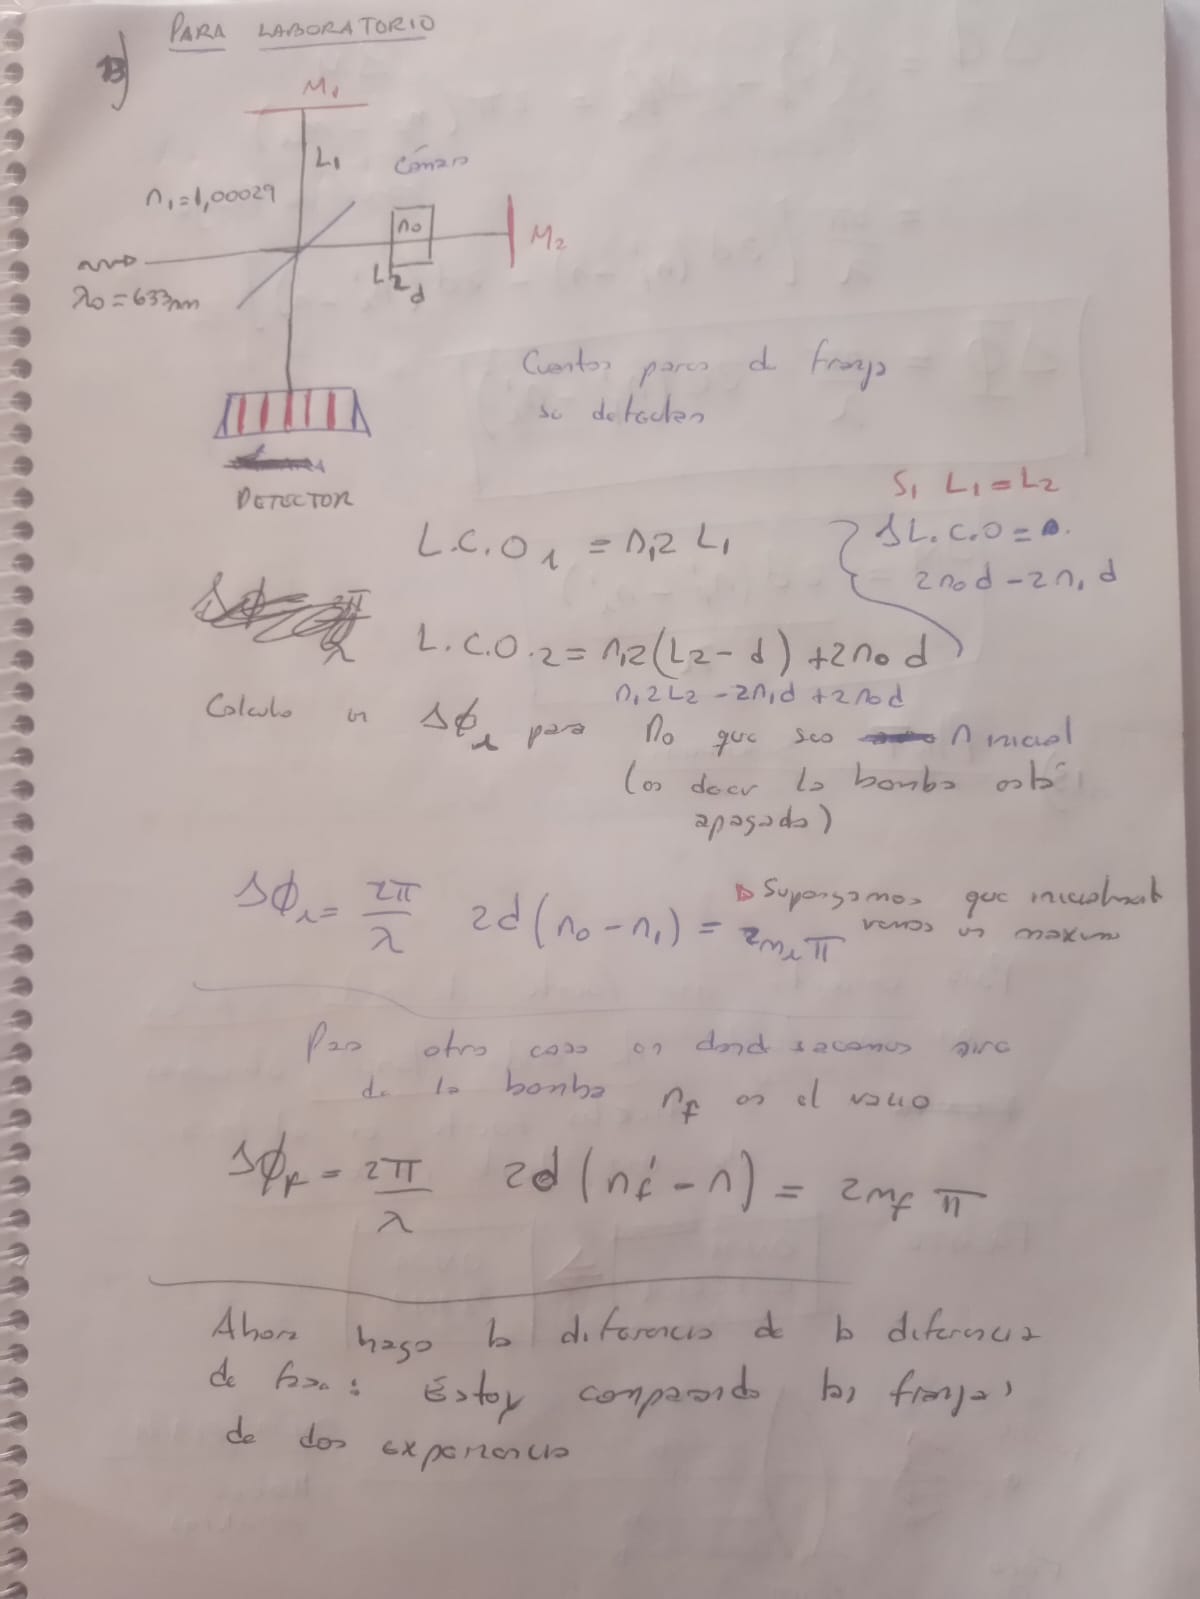 PARA LABORATORIO
B)
M₁
L₁
Cámara
n₁=1,00029
n₀
M₂
λ₀=633nm
L₂
d
Cuantos pares de franja
se detectan
DETECTOR
Si L₁=L₂
L.C.O₁ = n₁2 L₁
ΔL.C.O =
2n₀d-2n₁d
L.C.O.₂= n₁2(L₂-d)+2n₀d
n₁2L₂ -2n₁d +2n₀d
Calculo un Δϕᵢ para n₀ que sea n inicial
(es decir la bomba está
apagada)
Δϕᵢ= 2π/λ 2d(n₀-n₁) = 2mᵢπ
Supongamos que inicialmente
vemos un maximo
Para otro caso en donde sacamos aire
de la bomba nf es el vacio
Δϕf = 2π/λ 2d(nf - n) = 2mf π
Ahora hago la diferencia de la diferencia
de fase: Estoy comparando las franjas
de dos experiencias